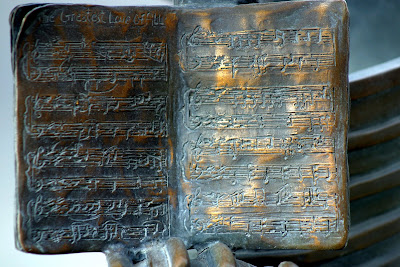 The Greatest Love Of All